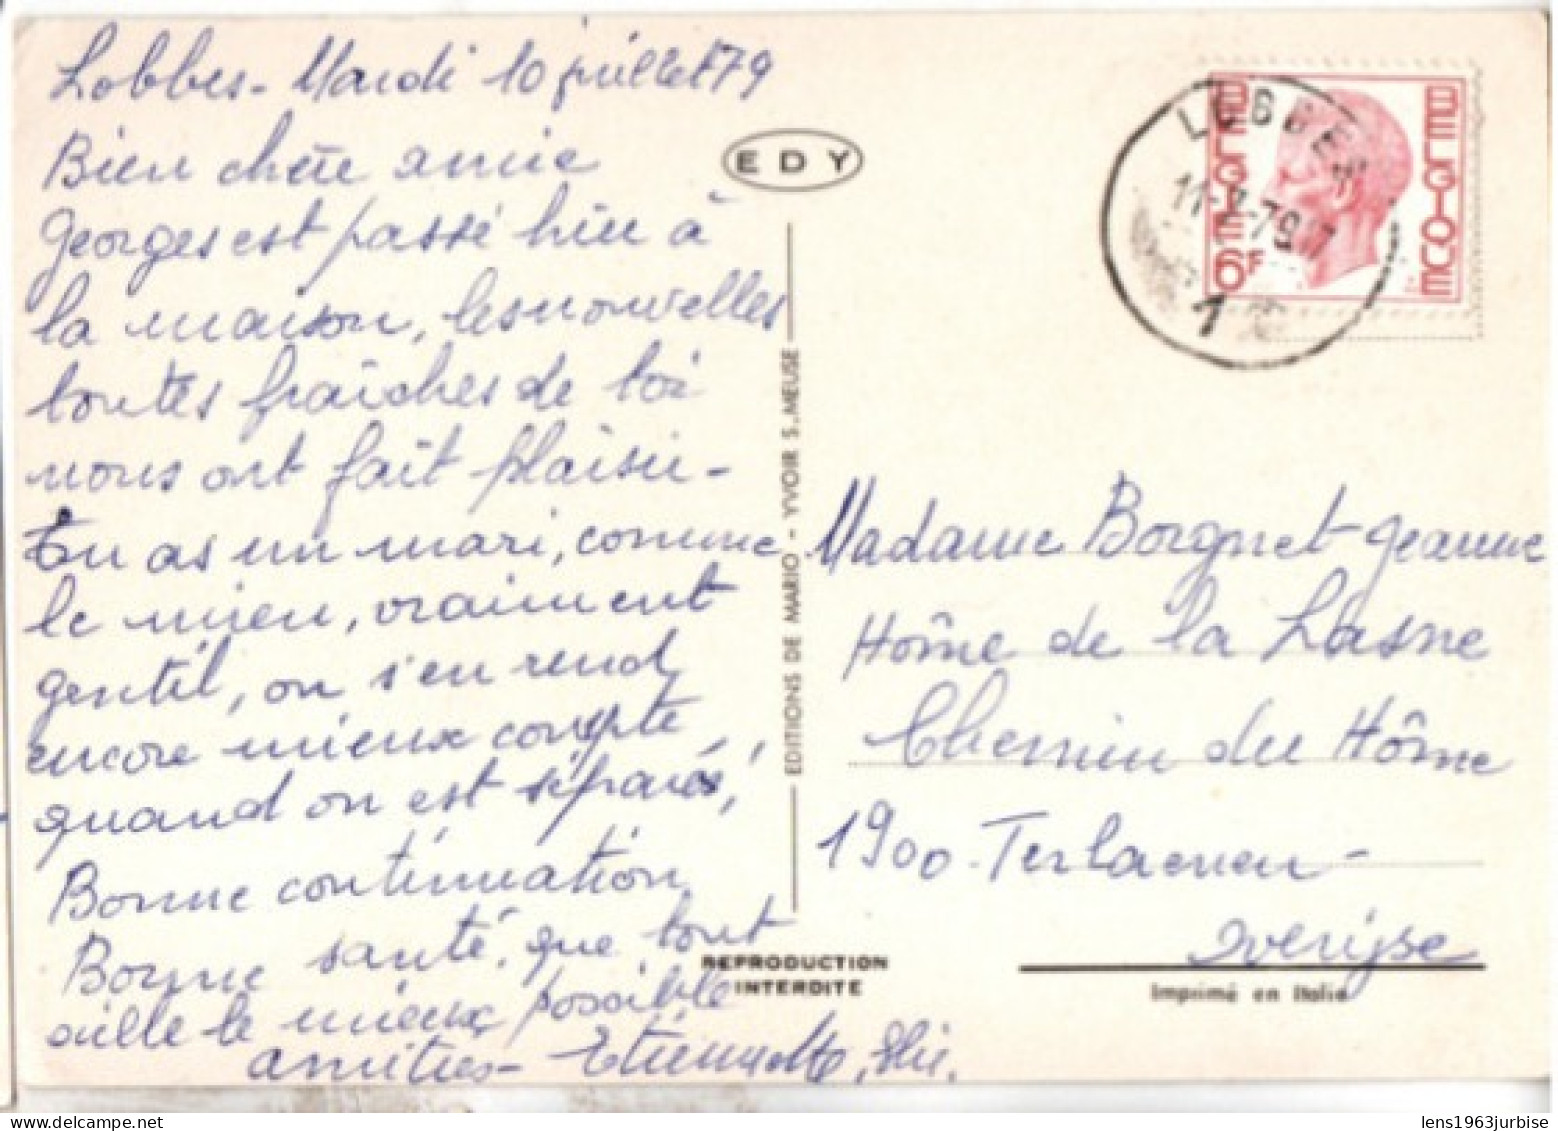 Lobbes - Mardi 10 juillet 79
Bien chère amie
Georges est passé hier à
la maison, les nouvelles
toutes fraîches de toi
nous ont fait plaisir -
Tu as un mari, comme
le mien, vraiment
gentil, on s'en rend
encore mieux compte
quand on est séparés,
Bonne continuation
Bonne santé, que tout
aille le mieux possible
amitiés - Etiennette,
EDY
EDITIONS DE MARIO - YVOIR S.,MEUSE
REPRODUCTION
INTERDITE
LOBBES
11-7-79
1
BELGIE
6F
BELGIQUE
Madame Borgnet Jeanne
Hôme de la Lasne
Chemin du Hôme
1900 - Terlaenen -
Overijse
Imprimé en Italie
lens1963jurbise